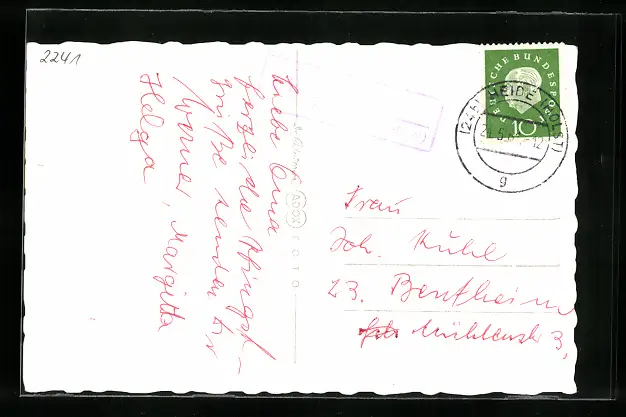 2241
Liebe Oma
herzliche Pfingst-
grüße senden Dir
Werner, Margitta
Helga
ADOX
FOTO
DEUTSCHE BUNDESPOST
10
(24b) HEIDE (HOLST)
g
Frau
Joh. Kühl
23. Bentheim
Mühlenstr 3,